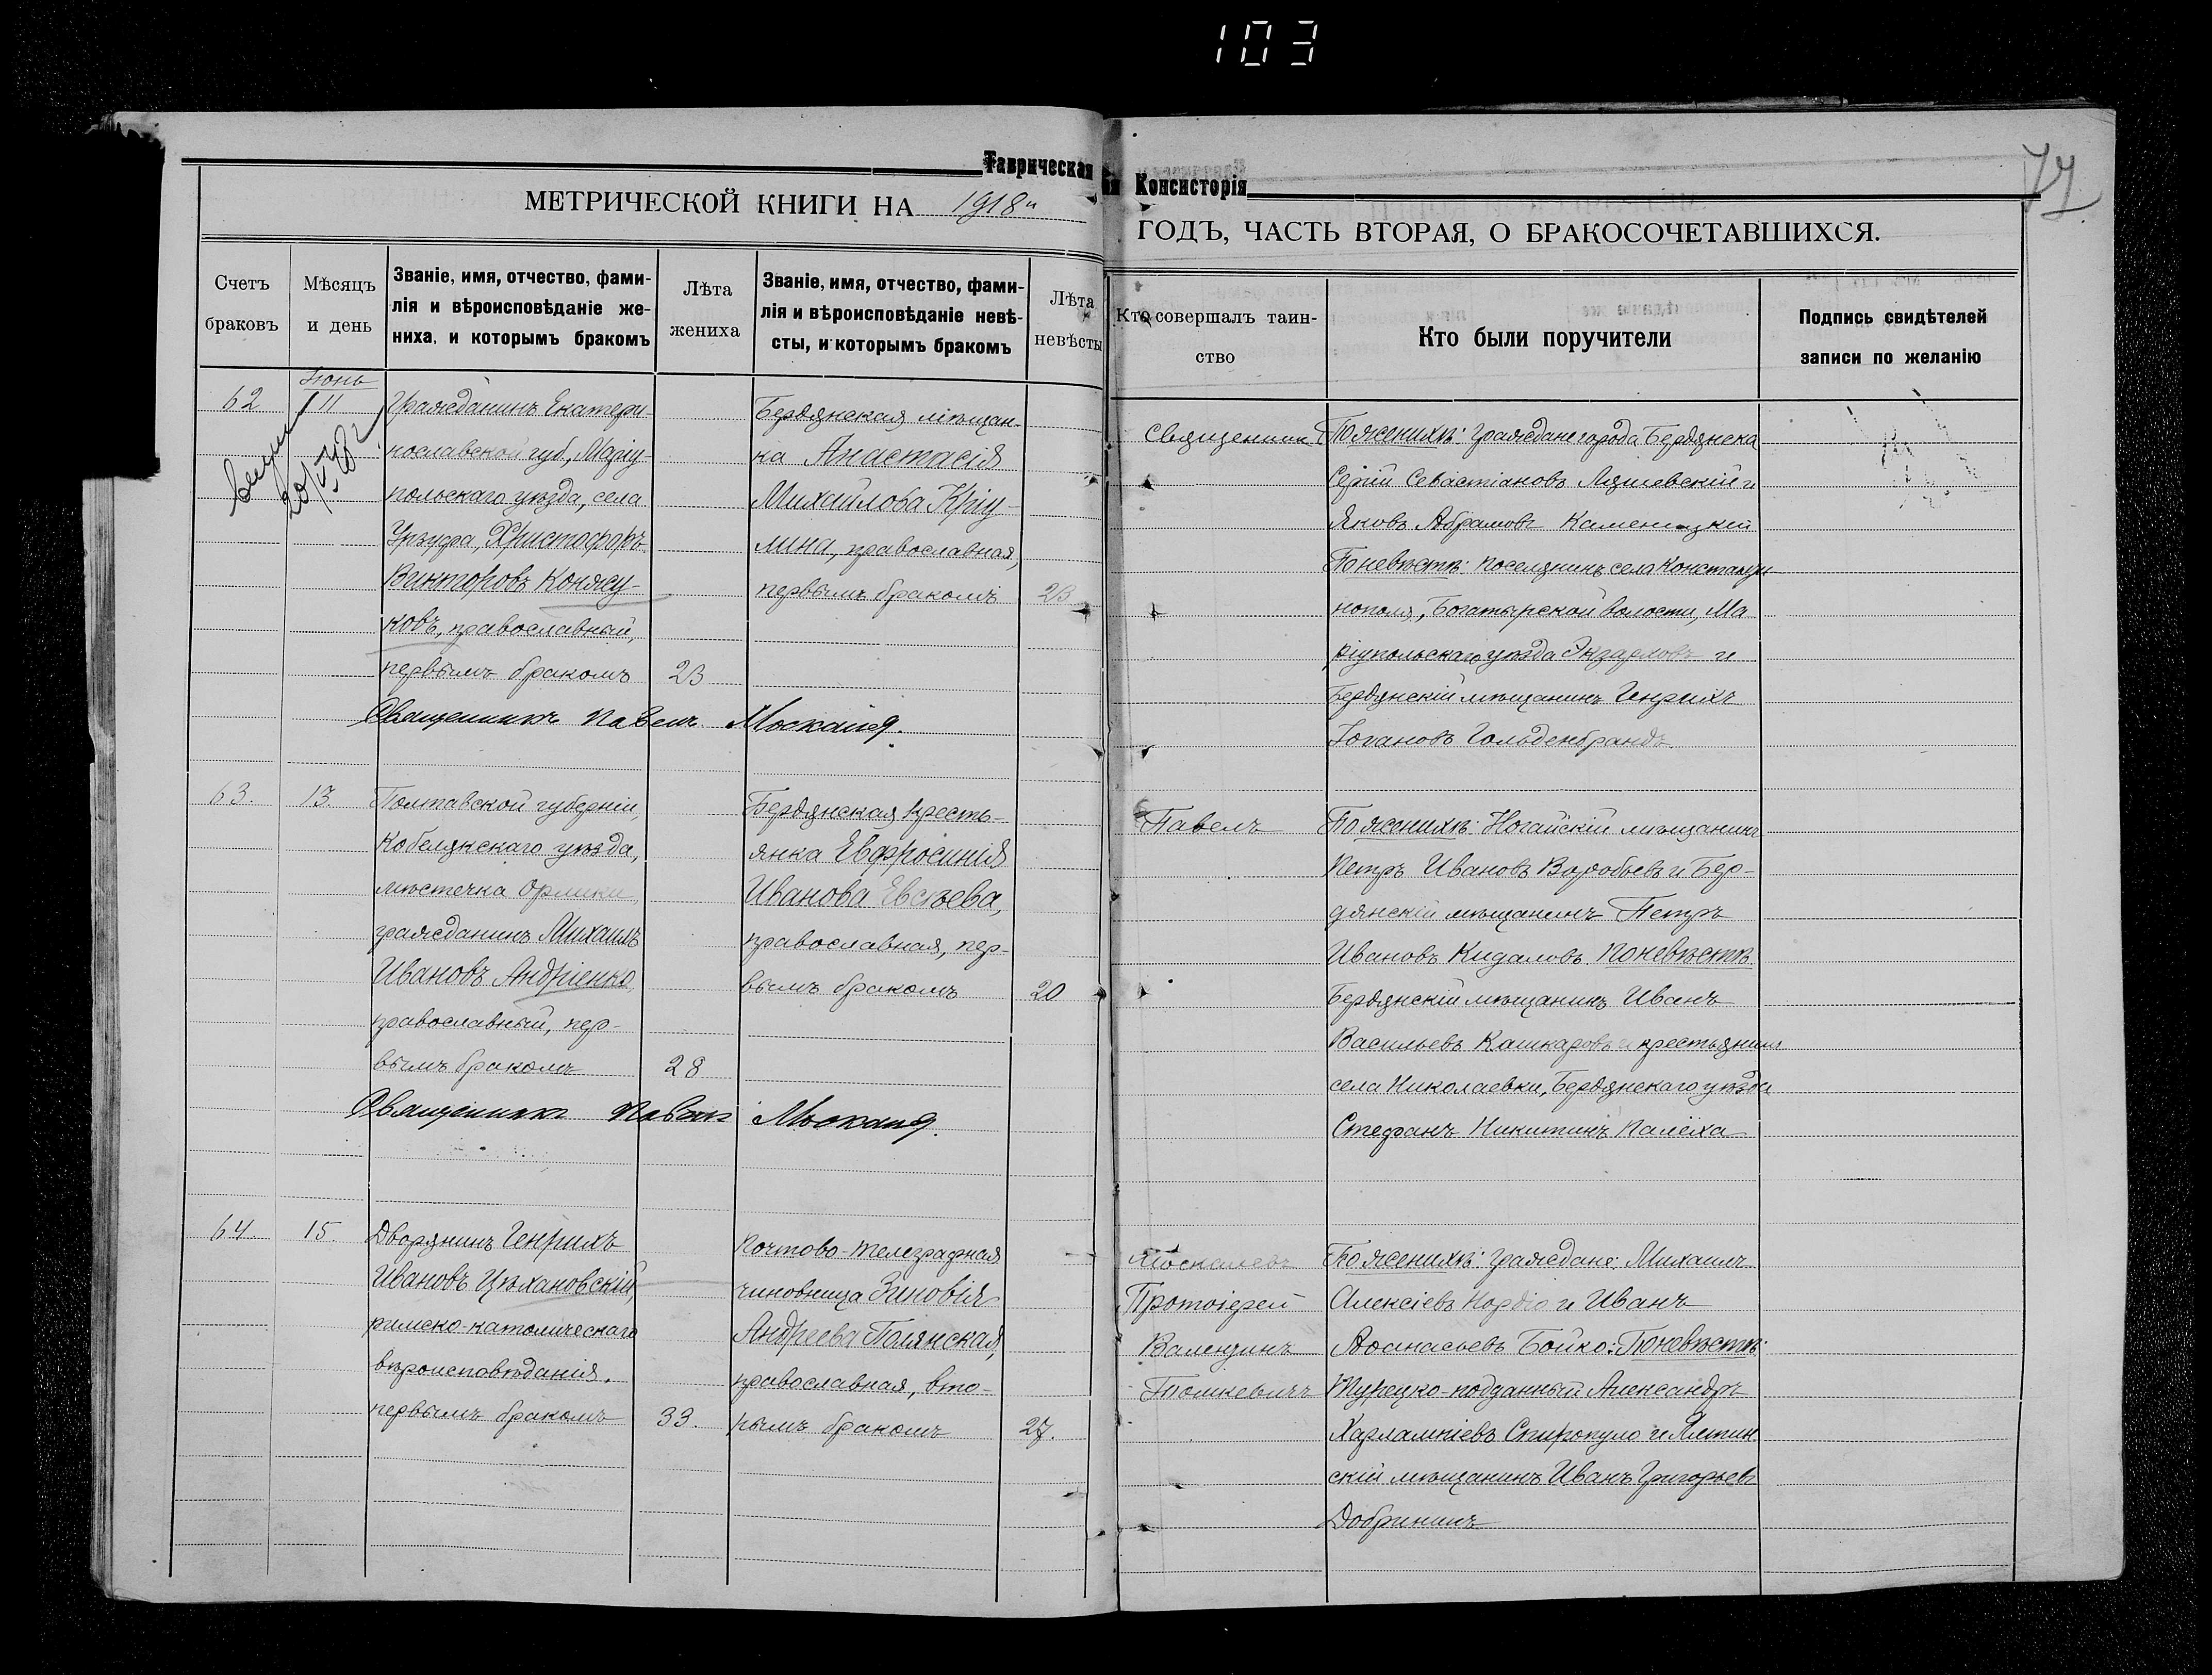 103
77
Таврическая
ая Консисторія
МЕТРИЧЕСКОЙ КНИГИ НА 1918й
ГОДЪ, ЧАСТЬ ВТОРАЯ, О БРАКОСОЧЕТАВШИХСЯ.
Счетъ
браковъ
Мѣсяцъ
и день
Званіе, имя, отчество, фами-
лія и вѣроисповѣданіе же-
ниха, и которымъ бракомъ
Лѣта
жениха
Званіе, имя, отчество, фами-
лія и вѣроисповѣданіе невѣ-
сты, и которымъ бракомъ
Лѣта
невѣсты
Кто совершалъ таин-
ство
Кто были поручители
Подпись свидѣтелей
записи по желанію
62
Іюнь
11
Гражданинъ Екатери-
нославской губ., Маріу-
польскаго уѣзда, села
Урзуфа, Христофоръ
Викторовъ Конжу-
ковъ, православный,
первымъ бракомъ
23
Бердянская мѣщан-
ка Анастасія
Михайлова Кріу-
лина, православная,
первымъ бракомъ
23
Священникъ Павелъ Москалев
Священникъ
По женихѣ: граждане города Бердянска
Сергій Севастіановъ Ляшевскій и
Яковъ Абрамовъ Каменицкій
По невѣстѣ: поселянинъ села Константи
нополя, Богатырской волости, Ма
ріупольскаго уѣзда и
Бердянскій мѣщанинъ Генрихъ
Іогановъ Гольденбрандъ.
63.
13.
Полтавской губерніи,
Кобелякскаго уѣзда,
мѣстечка Орлики,
гражданинъ Михаилъ
Ивановъ Андріенко,
православный, пер-
вымъ бракомъ
28
Бердянская кресть-
янка Евфросинія
Иванова Евсѣева,
православная, пер-
вымъ бракомъ
20
Священникъ Павелъ Москалев
Павелъ
По женихѣ: Ногайскій мѣщанинъ
Петръ Ивановъ Воробьевъ и Бер-
дянскій мѣщанинъ Петръ
Ивановъ Кидаловъ. По невѣстѣ
Бердянскій мѣщанинъ Иванъ
Васильевъ Кашкаровъ и крестьянинъ
села Николаевки, Бердянскаго уѣзда
Стефанъ Никитинъ Палёха
64
15.
Дворянинъ Генрихъ
Ивановъ Цѣхановскій,
римско-католическаго
вѣроисповѣданія,
первымъ бракомъ
33.
Почтово-телеграфная
чиновница Зиновія
Андреева Полянская,
православная, вто-
рымъ бракомъ
27.
Москалевъ
Протоіерей
Валентинъ
Тошкевичъ
По женихѣ: граждане: Михаилъ
Алексіевъ Нордіо и Иванъ
Аѳанасьевъ Бойко: По невѣстѣ:
Турецко-подданный Александръ
Харлампіевъ Спиропуло и Ялтин
скій мѣщанинъ Иванъ Григорьевъ
Добрининъ